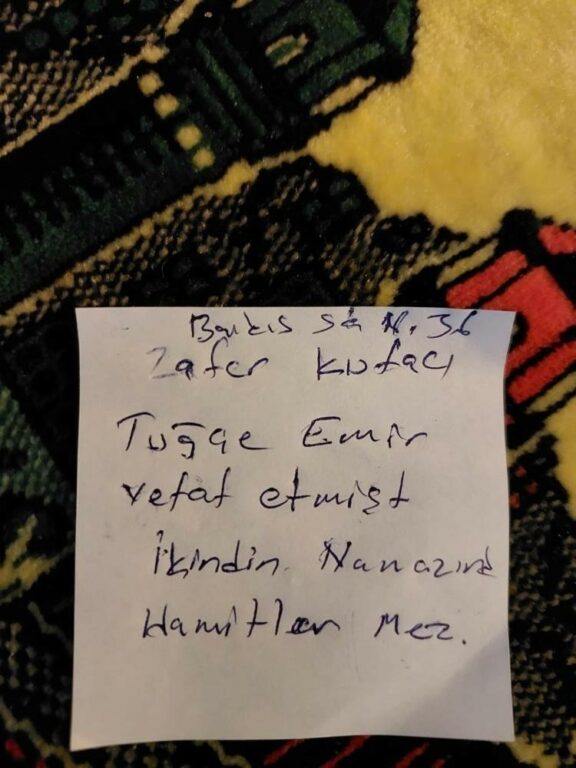 Balkıs Sk N. 36
Zafer Kufacı
Tuğçe Emir
vefat etmişt
İkindin Namazınd
Hamitler Mez.